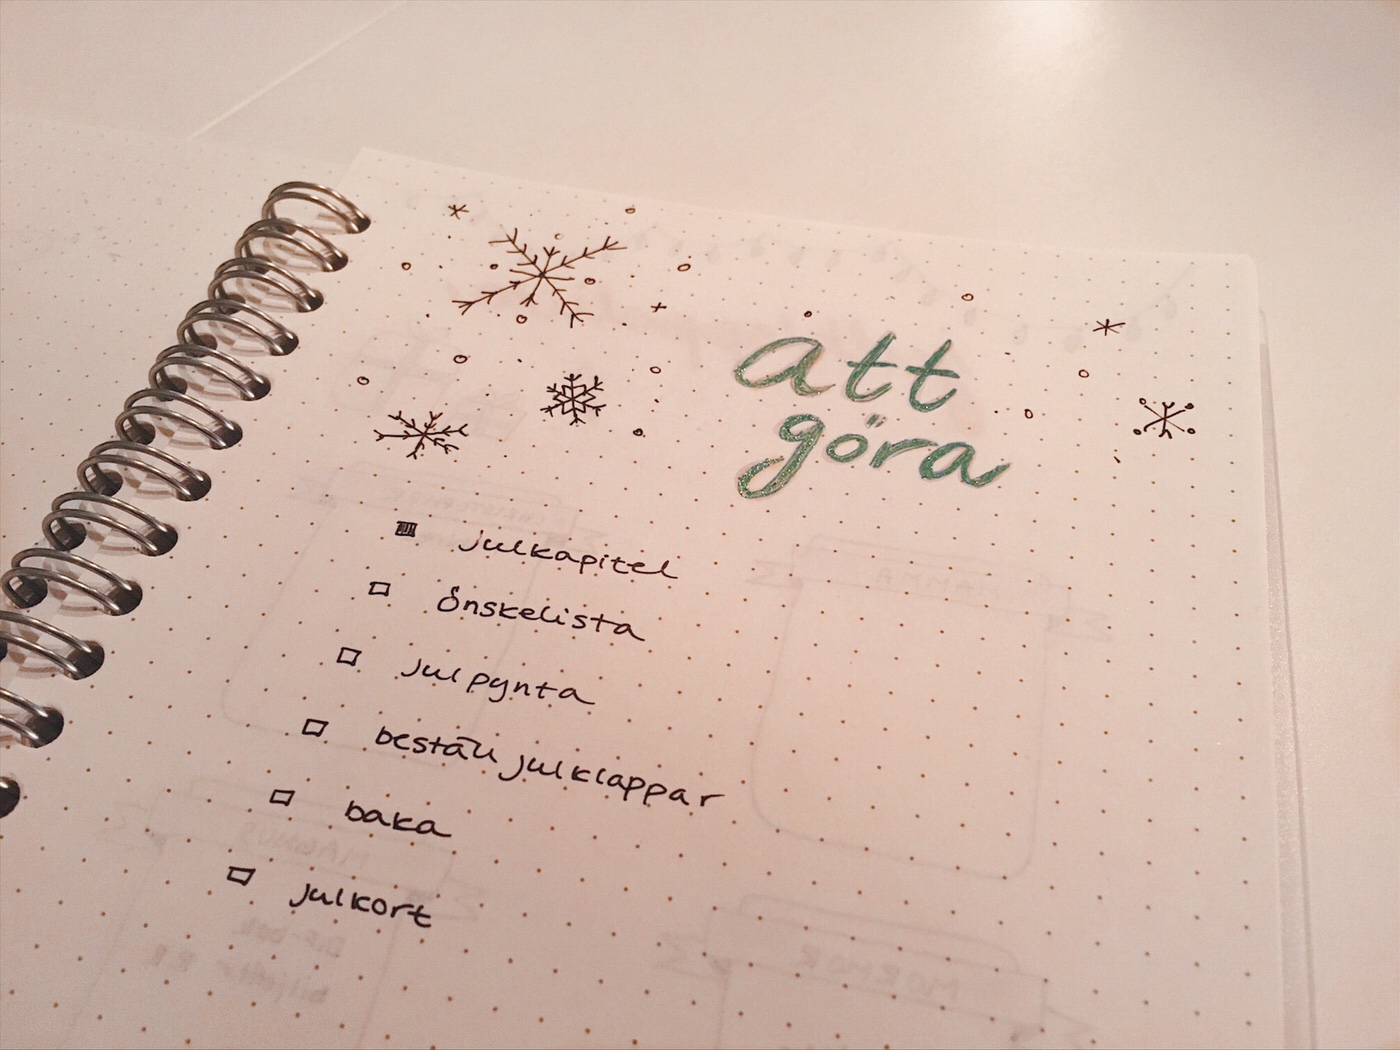 att
göra
julkapitel
önskelista
julpynta
beställ julklappar
baka
julkort